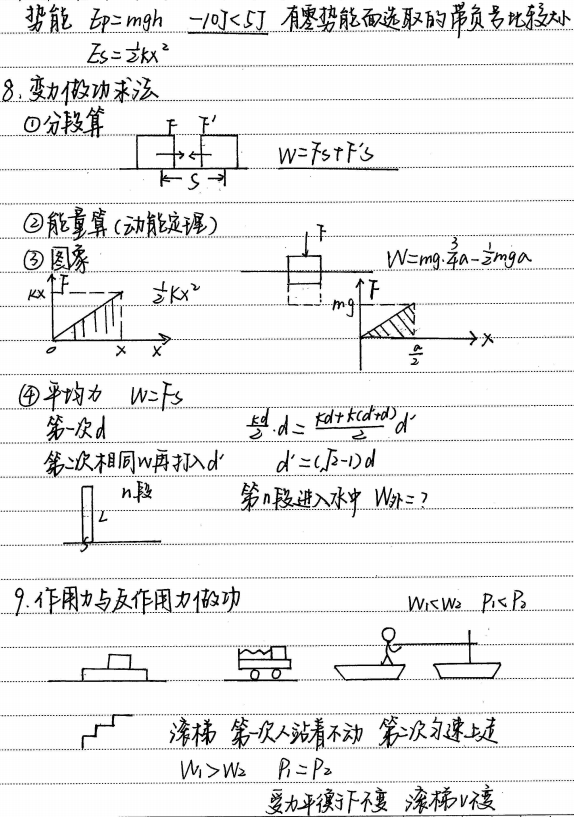 势能 Ep=mgh -10J<5J 有零势能面选取的带负号比较大小
Es=½kx²
8.变力做功求法
①分段算 F F'
W=Fs+F's
S
②能量算(动能定理)
F
③图象 W=mg·¾a-½mga
kx F ½kx² mg F
0 x x a/2 x
④平均力 W=Fs
第一次d kd/2·d=kd+k(d'+d)/2 d'
第二次相同W再打入d' d'=(√2-1)d
n段 第n段进入水中 W外=?
L
S
9.作用力与反作用力做功 W₁<W₂ P₁<P₂
滚梯 第一次人站着不动 第二次匀速上走
W₁>W₂ P₁=P₂
受力平衡了F不变 滚梯v不变